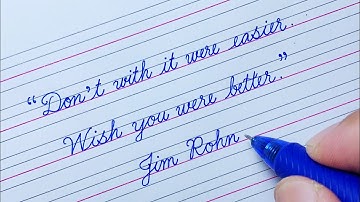 “Don't with it were easier.
Wish you were better.”
Jim Rohn